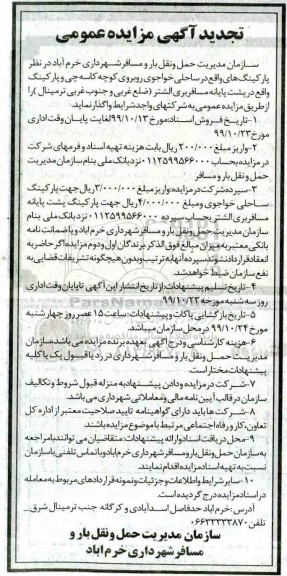 تجدید آگهی مزایده عمومی
سازمان مدیریت حمل و نقل بار و مسافر شهرداری خرم آباد در نظر
پارکینگ های واقع در ساحلی خواجوی روبروی کوچه کاسه چی و پارکینگ
واقع در پشت پایانه مسافربری الشتر (ضلع غربی و جنوب غربی ترمینال) را
از طریق مزایده عمومی به شرکتهای واجد شرایط واگذار نماید.
۱-تاریخ فروش اسناد:مورخ ۹۹/۱۰/۱۳ لغایت پایان وقت اداری
مورخ ۹۹/۱۰/۲۳
۲-واریز مبلغ ۲۰۰/۰۰۰ ریال بابت هزینه تهیه اسناد و فرمهای شرکت
در مزایده بحساب ۰۱۱۲۵۹۹۵۶۶۰۰۰ نزد بانک ملی بنام سازمان مدیریت
حمل و نقل بار و مسافر
۳-سپرده شرکت در مزایده:واریز مبلغ ۳/۰۰۰/۰۰۰ ریال جهت پارکینگ
ساحلی خواجوی و مبلغ ۴/۰۰۰/۰۰۰ ریال جهت پارکینگ پشت پایانه
مسافربری الشتر بحساب سپرده ۰۱۱۲۵۹۹۵۶۶۰۰۰ نزد بانک ملی بنام
سازمان مدیریت حمل و نقل بار و مسافر شهرداری خرم آباد و یا ضمانت نامه
بانکی معتبر به میزان مبالغ فوق الذکر.برندگان اول و دوم مزایده اگر حاضر به
انعقاد قرارداد نشوند سپرده آنها به ترتیب و بدون هیچگونه تشریفات قضایی به
نفع سازمان ضبط خواهد شد.
۴-تاریخ تسلیم پیشنهادات:از تاریخ انتشار این آگهی تا پایان وقت اداری
روز سه شنبه مورخه ۹۹/۱۰/۲۳
۵-تاریخ بازگشایی پاکات و پیشنهادات:ساعت ۱۵ عصر روز چهارشنبه
مورخ ۹۹/۱۰/۲۴ در محل سازمان میباشد.
۶-هزینه کارشناسی و درج آگهی بعهده برنده مزایده می باشد.سازمان
مدیریت حمل و نقل بار و مسافر شهرداری در رد یا قبول یک یا کلیه
پیشنهادات مختار است.
۷-شرکت در مزایده و دادن پیشنهاد به منزله قبول شروط و تکالیف
سازمان در قالب آیین نامه مالی و معاملاتی شهرداری می باشد.
۸-شرکت ها باید دارای گواهینامه تایید صلاحیت معتبر از اداره کل
تعاون،کار و رفاه اجتماعی مرتبط با موضوع مزایده باشند.
۹-محل دریافت اسناد و ارائه پیشنهادات:متقاضیان می توانند با مراجعه
به سازمان حمل و نقل بار و مسافر شهرداری خرم آباد و یا تماس تلفنی با سازمان
نسبت به تهیه اسناد مزایده اقدام نمایند.
۱۰-سایر شرایط و اطلاعات و جزئیات و نمونه قراردادهای مربوط به معامله
در اسناد مزایده درج گردیده است.
آدرس:خرم آباد حد فاصل اسدآبادی و کرگانه جنب ترمینال شرق_
تلفن ۰۶۶۳۳۳۳۳۸۷۰
سازمان مدیریت حمل و نقل بار و
مسافر شهرداری خرم آباد